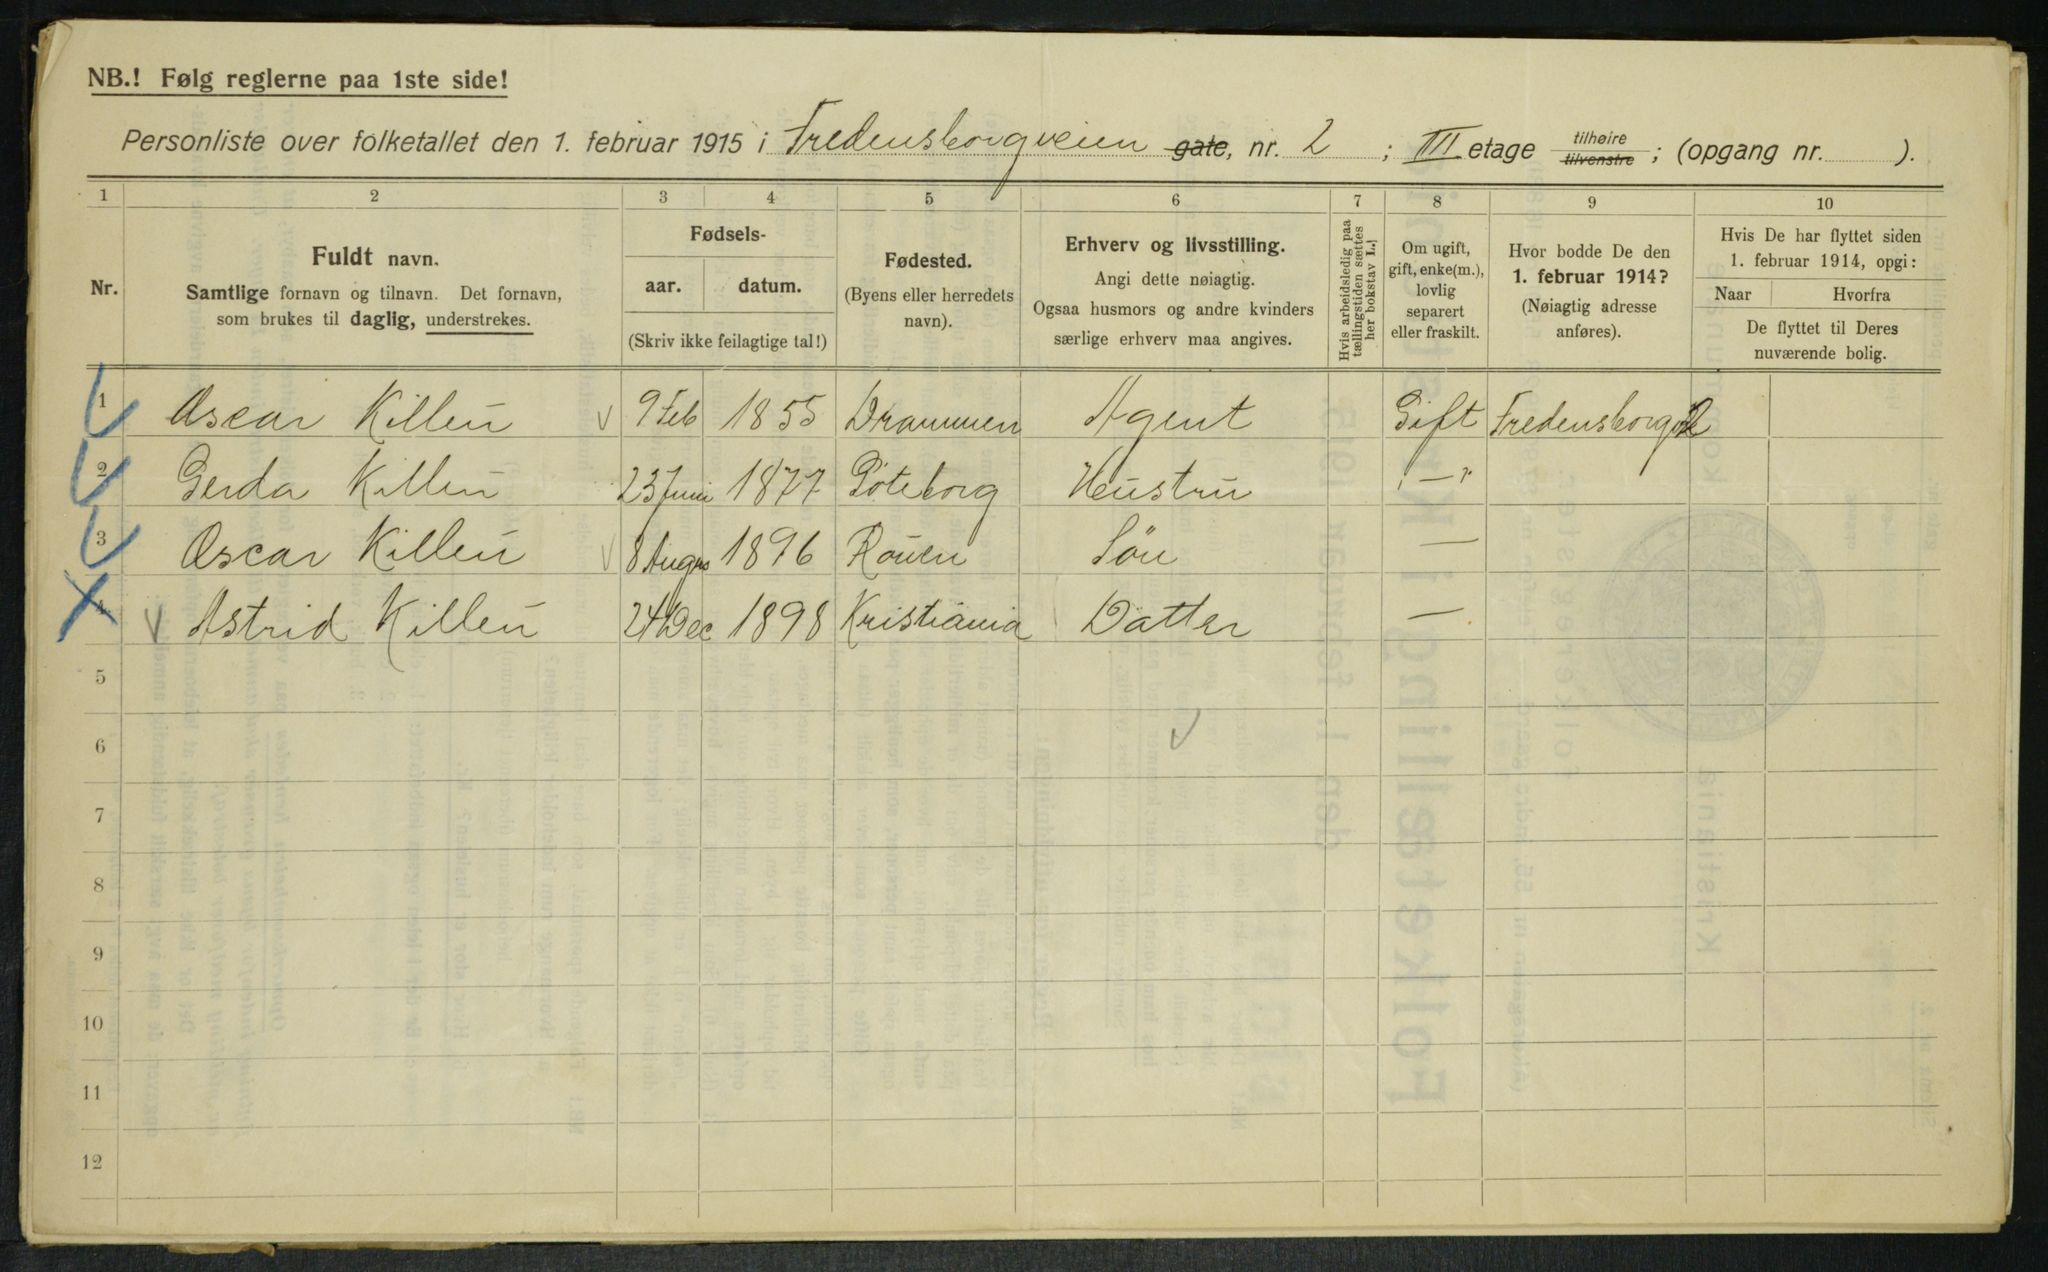 NB.! Følg reglerne paa 1ste side!
Personliste over folketallet den 1. februar 1915 i Fredensborgveien gate, nr. 2 ; III etage tilhøire tilvenstre ; (opgang nr. ).
1 2 3 4 5 6 7 8 9 10
Nr.
Fuldt navn.
Samtlige fornavn og tilnavn. Det fornavn,
som brukes til daglig, understrekes.
Fødsels-
aar. datum.
(Skriv ikke feilagtige tal!)
Fødested.
(Byens eller herredets
navn).
Erhverv og livsstilling.
Angi dette nøiagtig.
Ogsaa husmors og andre kvinders
særlige erhverv maa angives.
Hvis arbeidsledig paa
tællingstiden sættes
her bokstav L.!
Om ugift,
gift, enke(m.),
lovlig
separert
eller fraskilt.
Hvor bodde De den
1. februar 1914?
(Nøiagtig adresse
anføres).
Hvis De har flyttet siden
1. februar 1914, opgi:
Naar Hvorfra
De flyttet til Deres
nuværende bolig.
1 Oscar Killeń 9 Feb 1855 Drammen Agent Gift
2 Gerda Killeń 23 Juni 1877 Göteborg Heustru " — "
3 Oscar Killeń 8 1896 Rouen Sön —
4 Astrid Killeń 24 Dec 1898 Kristiania Datter —
5
6
7
8
9
10
11
12